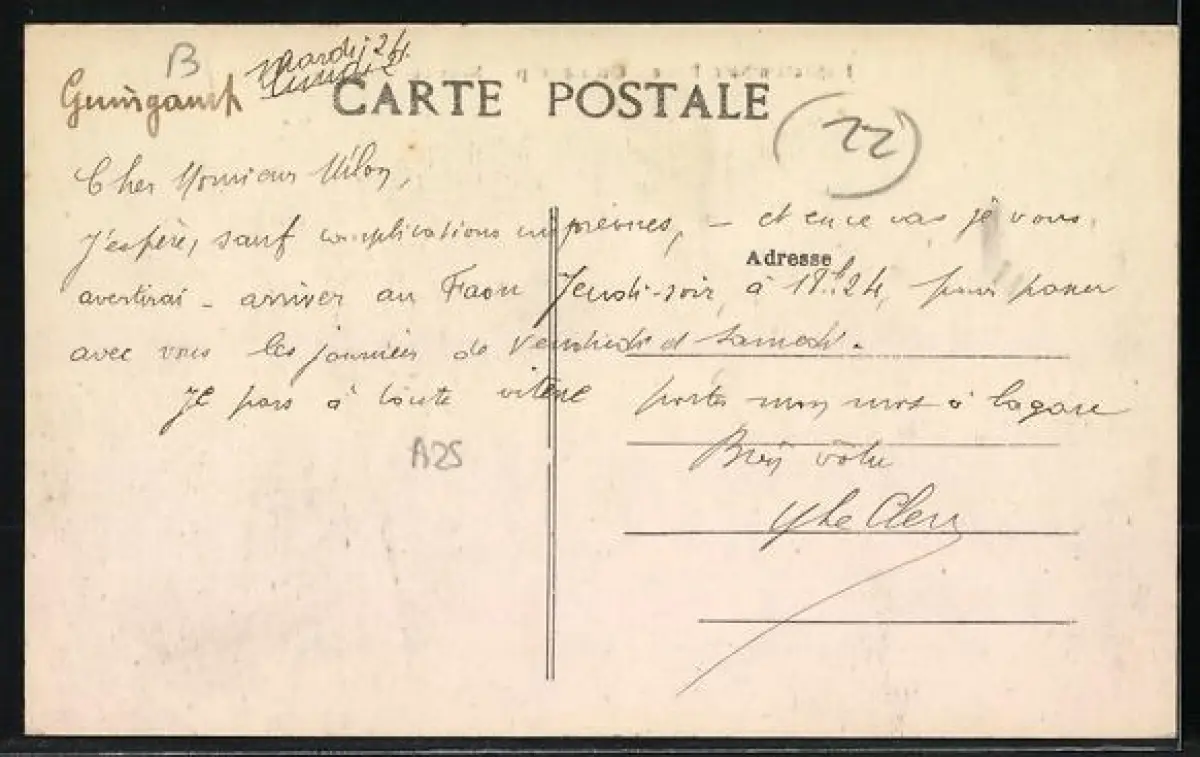 B
Guingamp
Mardi 24
Lundi
CARTE POSTALE
22
Cher Monsieur Milon,
J'espère, sauf complications imprévues, – et en ce cas je vous
Adresse
avertirai – arriver au Faou Jeudi-soir, à 18h.24, pour passer
avec vous les journées de Vendredi et Samedi.
Je pars à toute vitesse porter mon mot à la gare
Bien vôtre
A25
Y Le Clerc